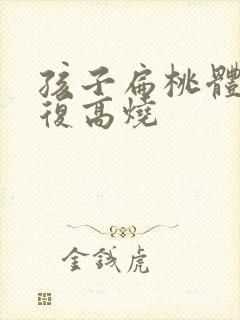 孩子扁桃體
復高燒
金錢虎